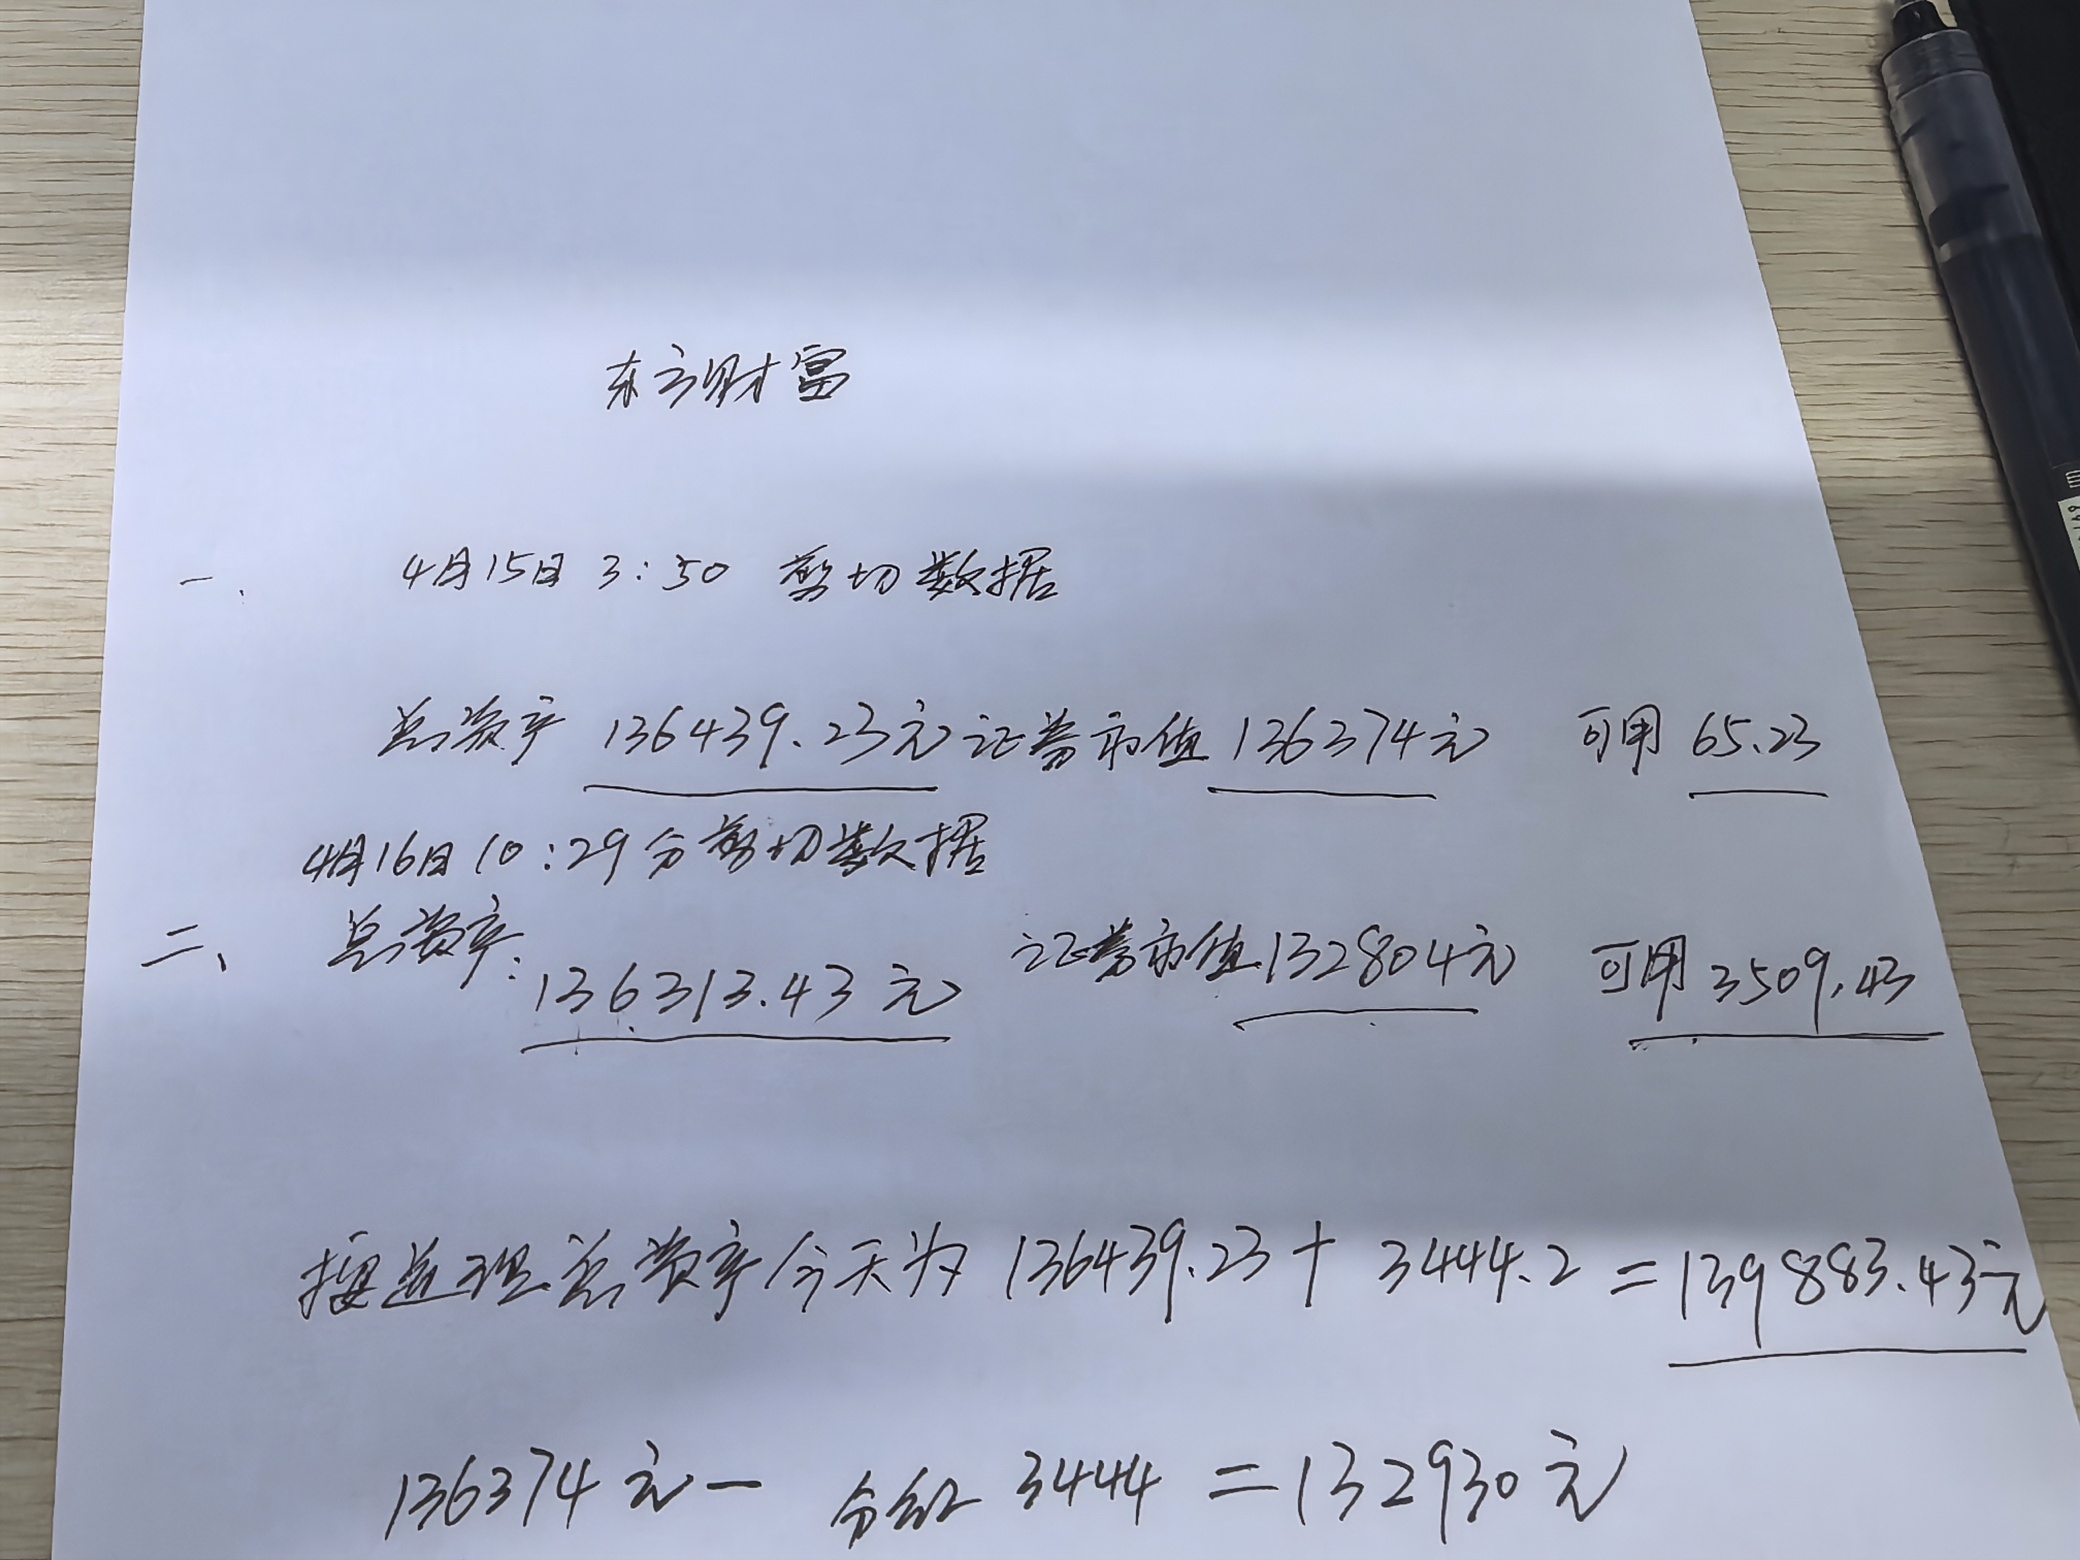 东方财富
一、 4月15日 3:50 剪切数据
总资产 136439.23元 证券市值 136374元 可用 65.23
4月16日 10:29分剪切数据
二、 总资产: 136313.43元 证券市值 132804元 可用 3509.43
按道理总资产今天为 136439.23 + 3444.2 = 139883.43元
136374元 - 分红 3444 = 132930元